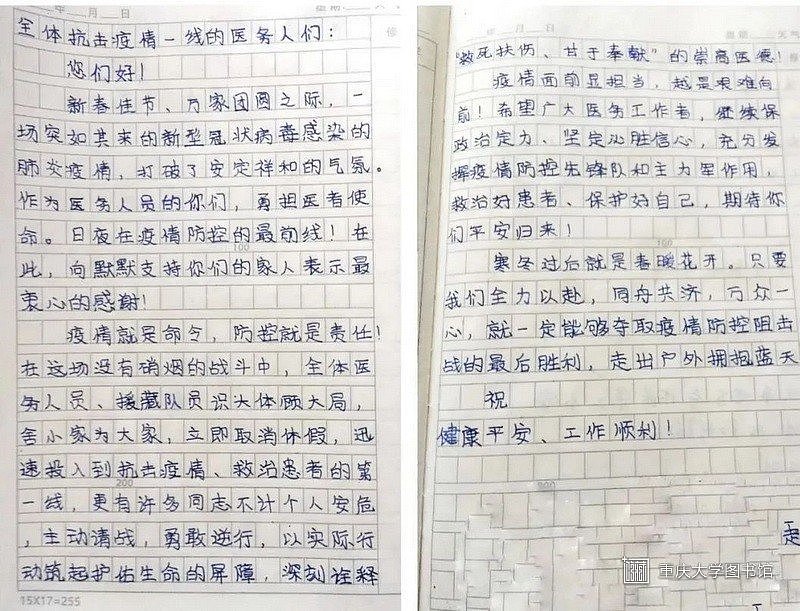 年 月 日
星期
全体抗击疫情一线的医务人们：
您们好！
新春佳节、万家团圆之际，一
场突如其来的新型冠状病毒感染的
肺炎疫情，打破了安定祥和的气氛。
作为医务人员的你们，勇担医者使
命。日夜在疫情防控的最前线！在
此，向默默支持你们的家人表示最
衷心的感谢！
疫情就是命令，防控就是责任！
在这场没有硝烟的战斗中，全体医
务人员、援藏队员识大体顾大局，
舍小家为大家，立即取消休假，迅
速投入到抗击疫情、救治患者的第
一线，更有许多同志不计个人安危
，主动请战，勇敢逆行，以实际行
动筑起护佑生命的屏障，深刻诠释
100
200
15X17=255
年 月 日
"救死扶伤、甘于奉献"的崇高医德！
疫情面前显担当，越是艰难向
前！希望广大医务工作者，继续保
政治定力、坚定必胜信心，充分发
挥疫情防控先锋队和主力军作用，
救治好患者、保护好自己，期待你
们平安归来！
寒冬过后就是春暖花开。只要
我们全力以赴，同舟共济，万众一
心，就一定能够夺取疫情防控阻击
战的最后胜利，走出户外拥抱蓝天
祝
健康平安、工作顺利！
100
200
重庆大学图书馆